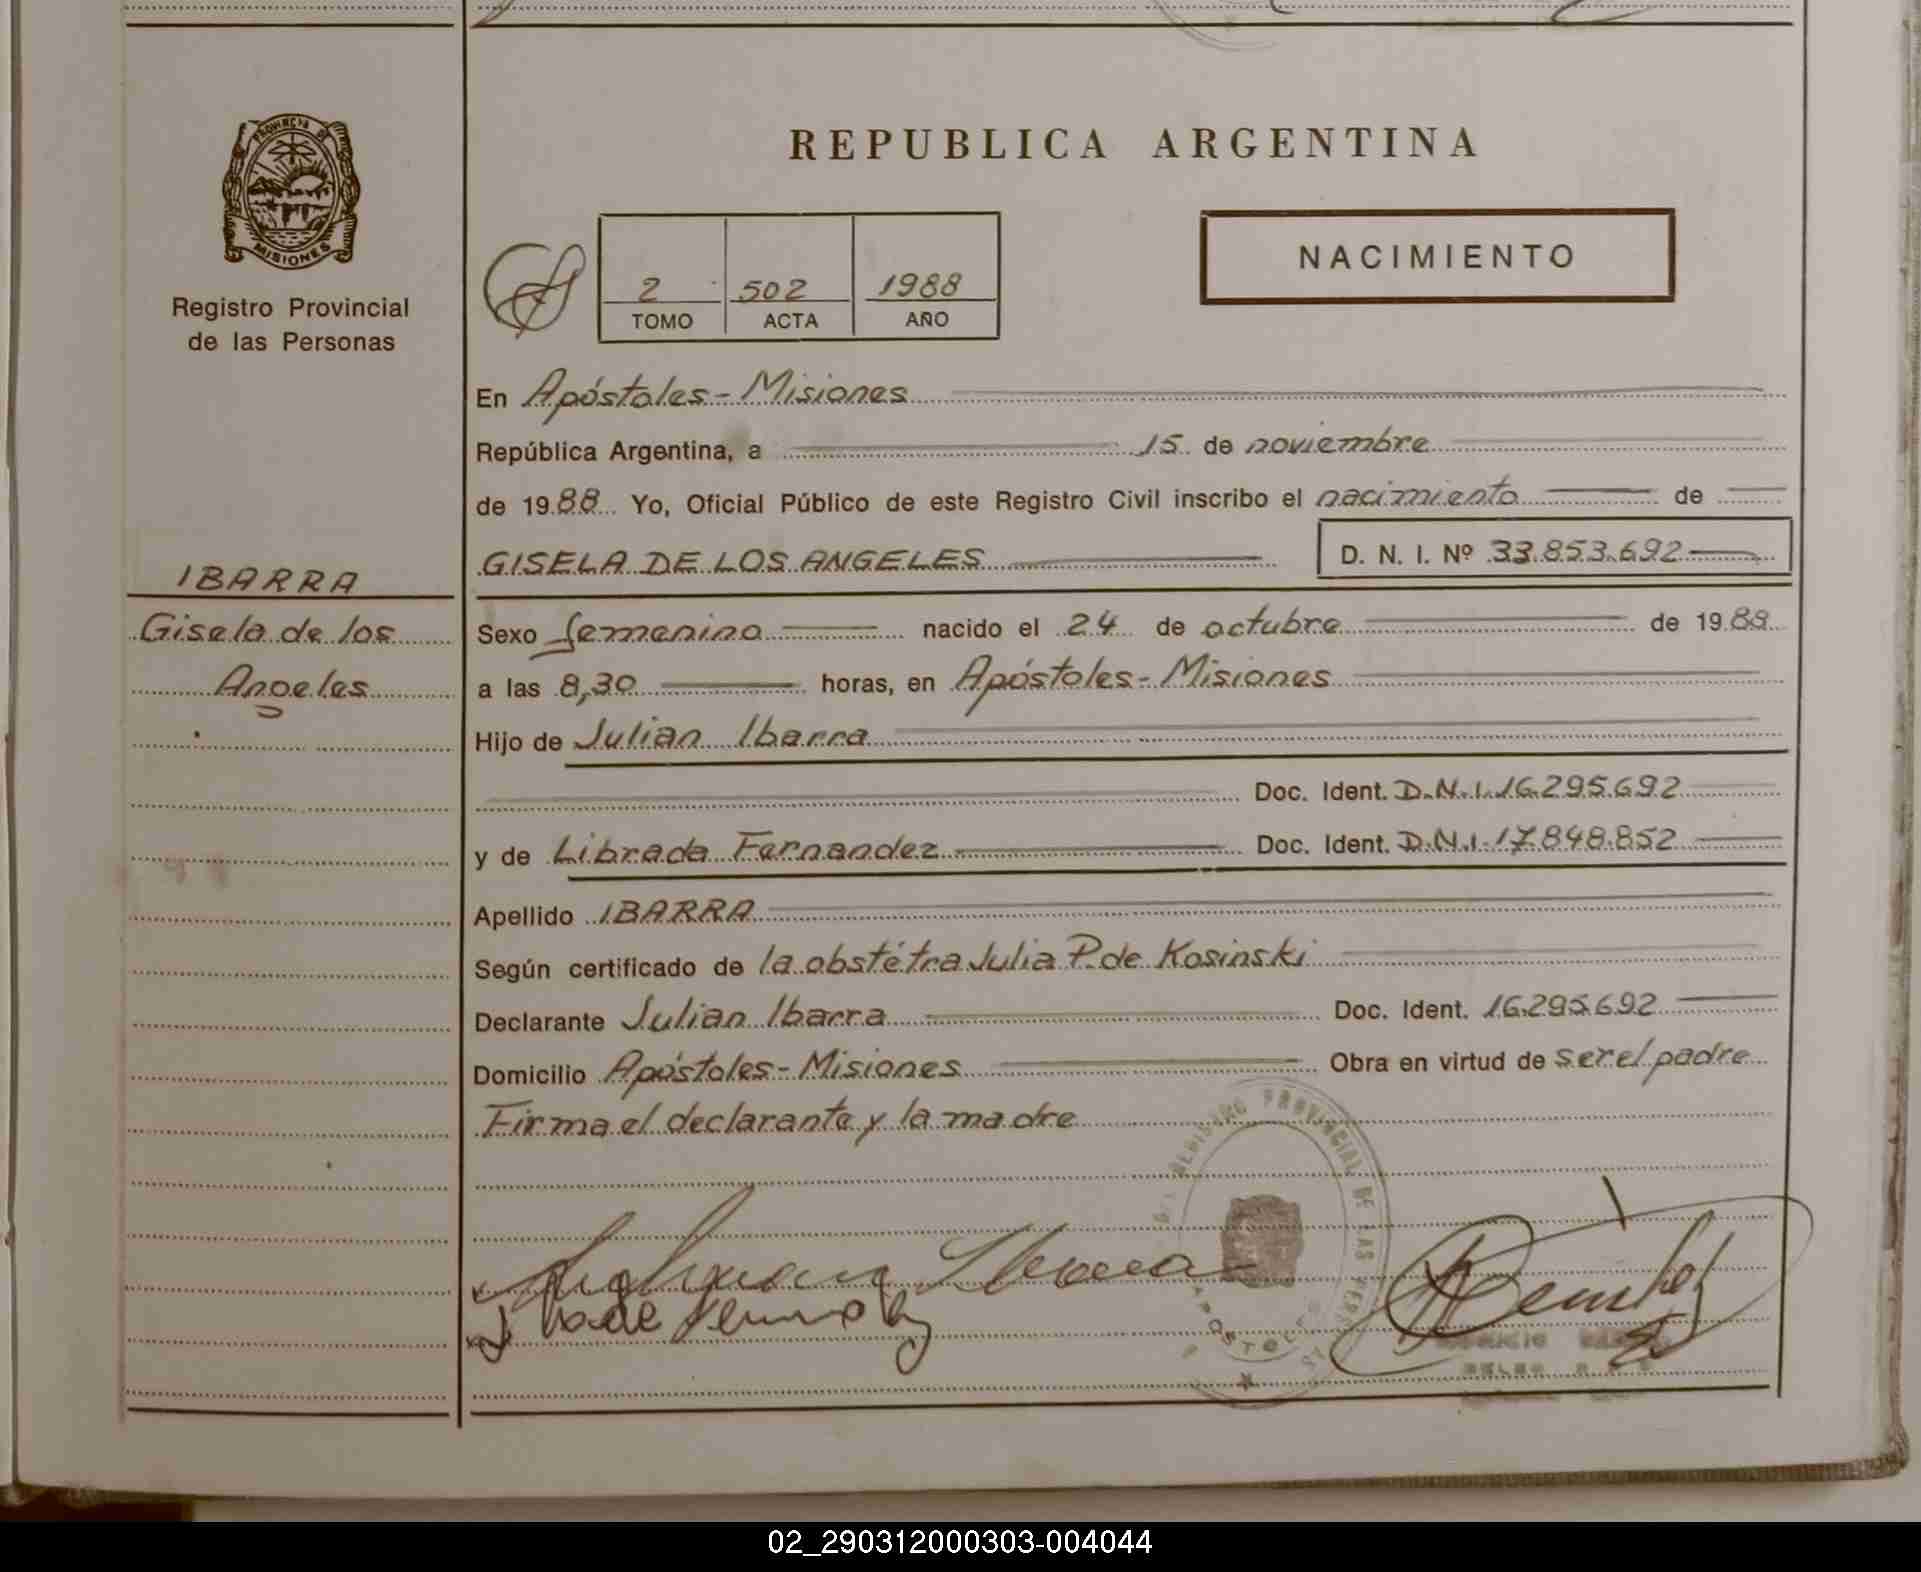 PROVINCIA DE
MISIONES
Registro Provincial
de las Personas
REPUBLICA ARGENTINA
2 502 1988
TOMO ACTA AÑO
NACIMIENTO
En Apóstoles - Misiones
República Argentina, a 15 de noviembre
de 1988 Yo, Oficial Público de este Registro Civil inscribo el nacimiento de
GISELA DE LOS ANGELES D. N. I. Nº 33.853.692
IBARRA
Gisela de los
Angeles
Sexo femenino nacido el 24 de octubre de 1988
a las 8,30 horas, en Apóstoles - Misiones
Hijo de Julian Ibarra
Doc. Ident. D.N.I. 16.295.692
y de Librada Fernandez Doc. Ident. D.N.I. 17.848.852
Apellido IBARRA
Según certificado de la obstétra Julia P. de Kosinski
Declarante Julian Ibarra Doc. Ident. 16.295.692
Domicilio Apóstoles - Misiones Obra en virtud de ser el padre
Firma el declarante y la madre
REGISTRO PROVINCIAL DE LAS PERSONAS
APOSTOLES
02_290312000303-004044